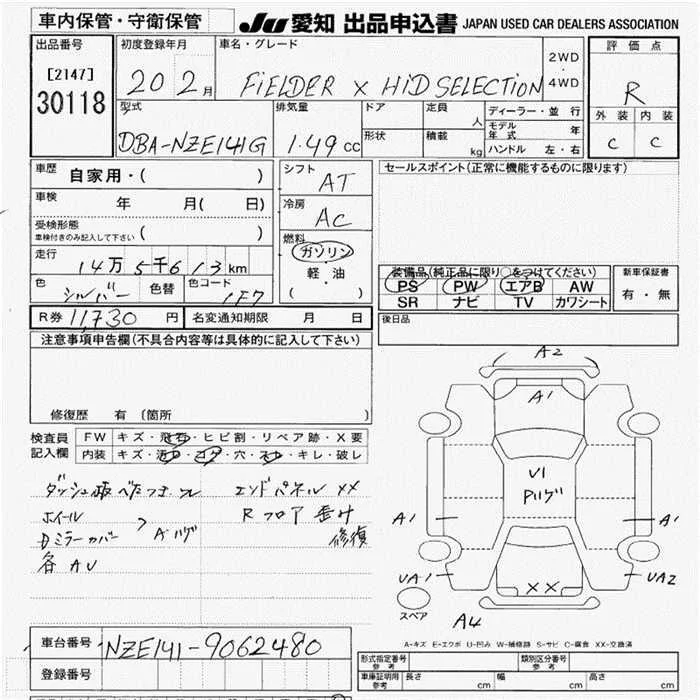 車内保管・守衛保管
JU 愛知 出品申込書 JAPAN USED CAR DEALERS ASSOCIATION
出品番号
[2147]
30118
初度登録年月
20 2月
車名・グレード
FiELDER X HiD SELECTION
2WD
・
4WD
評価点
R
外装 内装
C C
型式
DBA-NZE141G
排気量
1.49cc
ドア
形状
定員
人
積載
kg
ディーラー・並行
モデル年式 年
ハンドル 左・右
車歴
自家用・( )
車検
年 月( 日)
受検形態
車検付きのみ記入して下さい ( )
走行
14万5千613km
色
シルバー
色替
色コード
1F7
シフト
AT
冷房
AC
燃料
ガソリン
軽・油
( )
セールスポイント(正常に機能するものに限ります)
装備品(純正品に限り○をつけてください)
PS PW エアB AW
SR ナビ TV カワシート
新車保証書
有・無
R券 11,730 円
名変通知期限 月 日
後日品
注意事項申告欄(不具合内容等は具体的に記入して下さい)
修復歴 有 (箇所
検査員
記入欄
FW キズ・飛石・ヒビ割・リペア跡・X要
内装 キズ・汚れ・コゲ・穴・スレ・キレ・破レ
ダッシュ板
エンドパネル XX
ホイール
Rフロア
修復
Dミラーカバー
各AU
A2
A1
V1
A1
A1
UA1
XX
UA2
スペア
A4
A-キズ E-エクボ U-凹み W-補修跡 S-サビ C-腐食 XX-交換済
車台番号
NZE141-9062480
登録番号
形式指定番号
参考
類別区分番号
参考
車庫証明用
参考
長さ cm
幅 cm
高さ cm